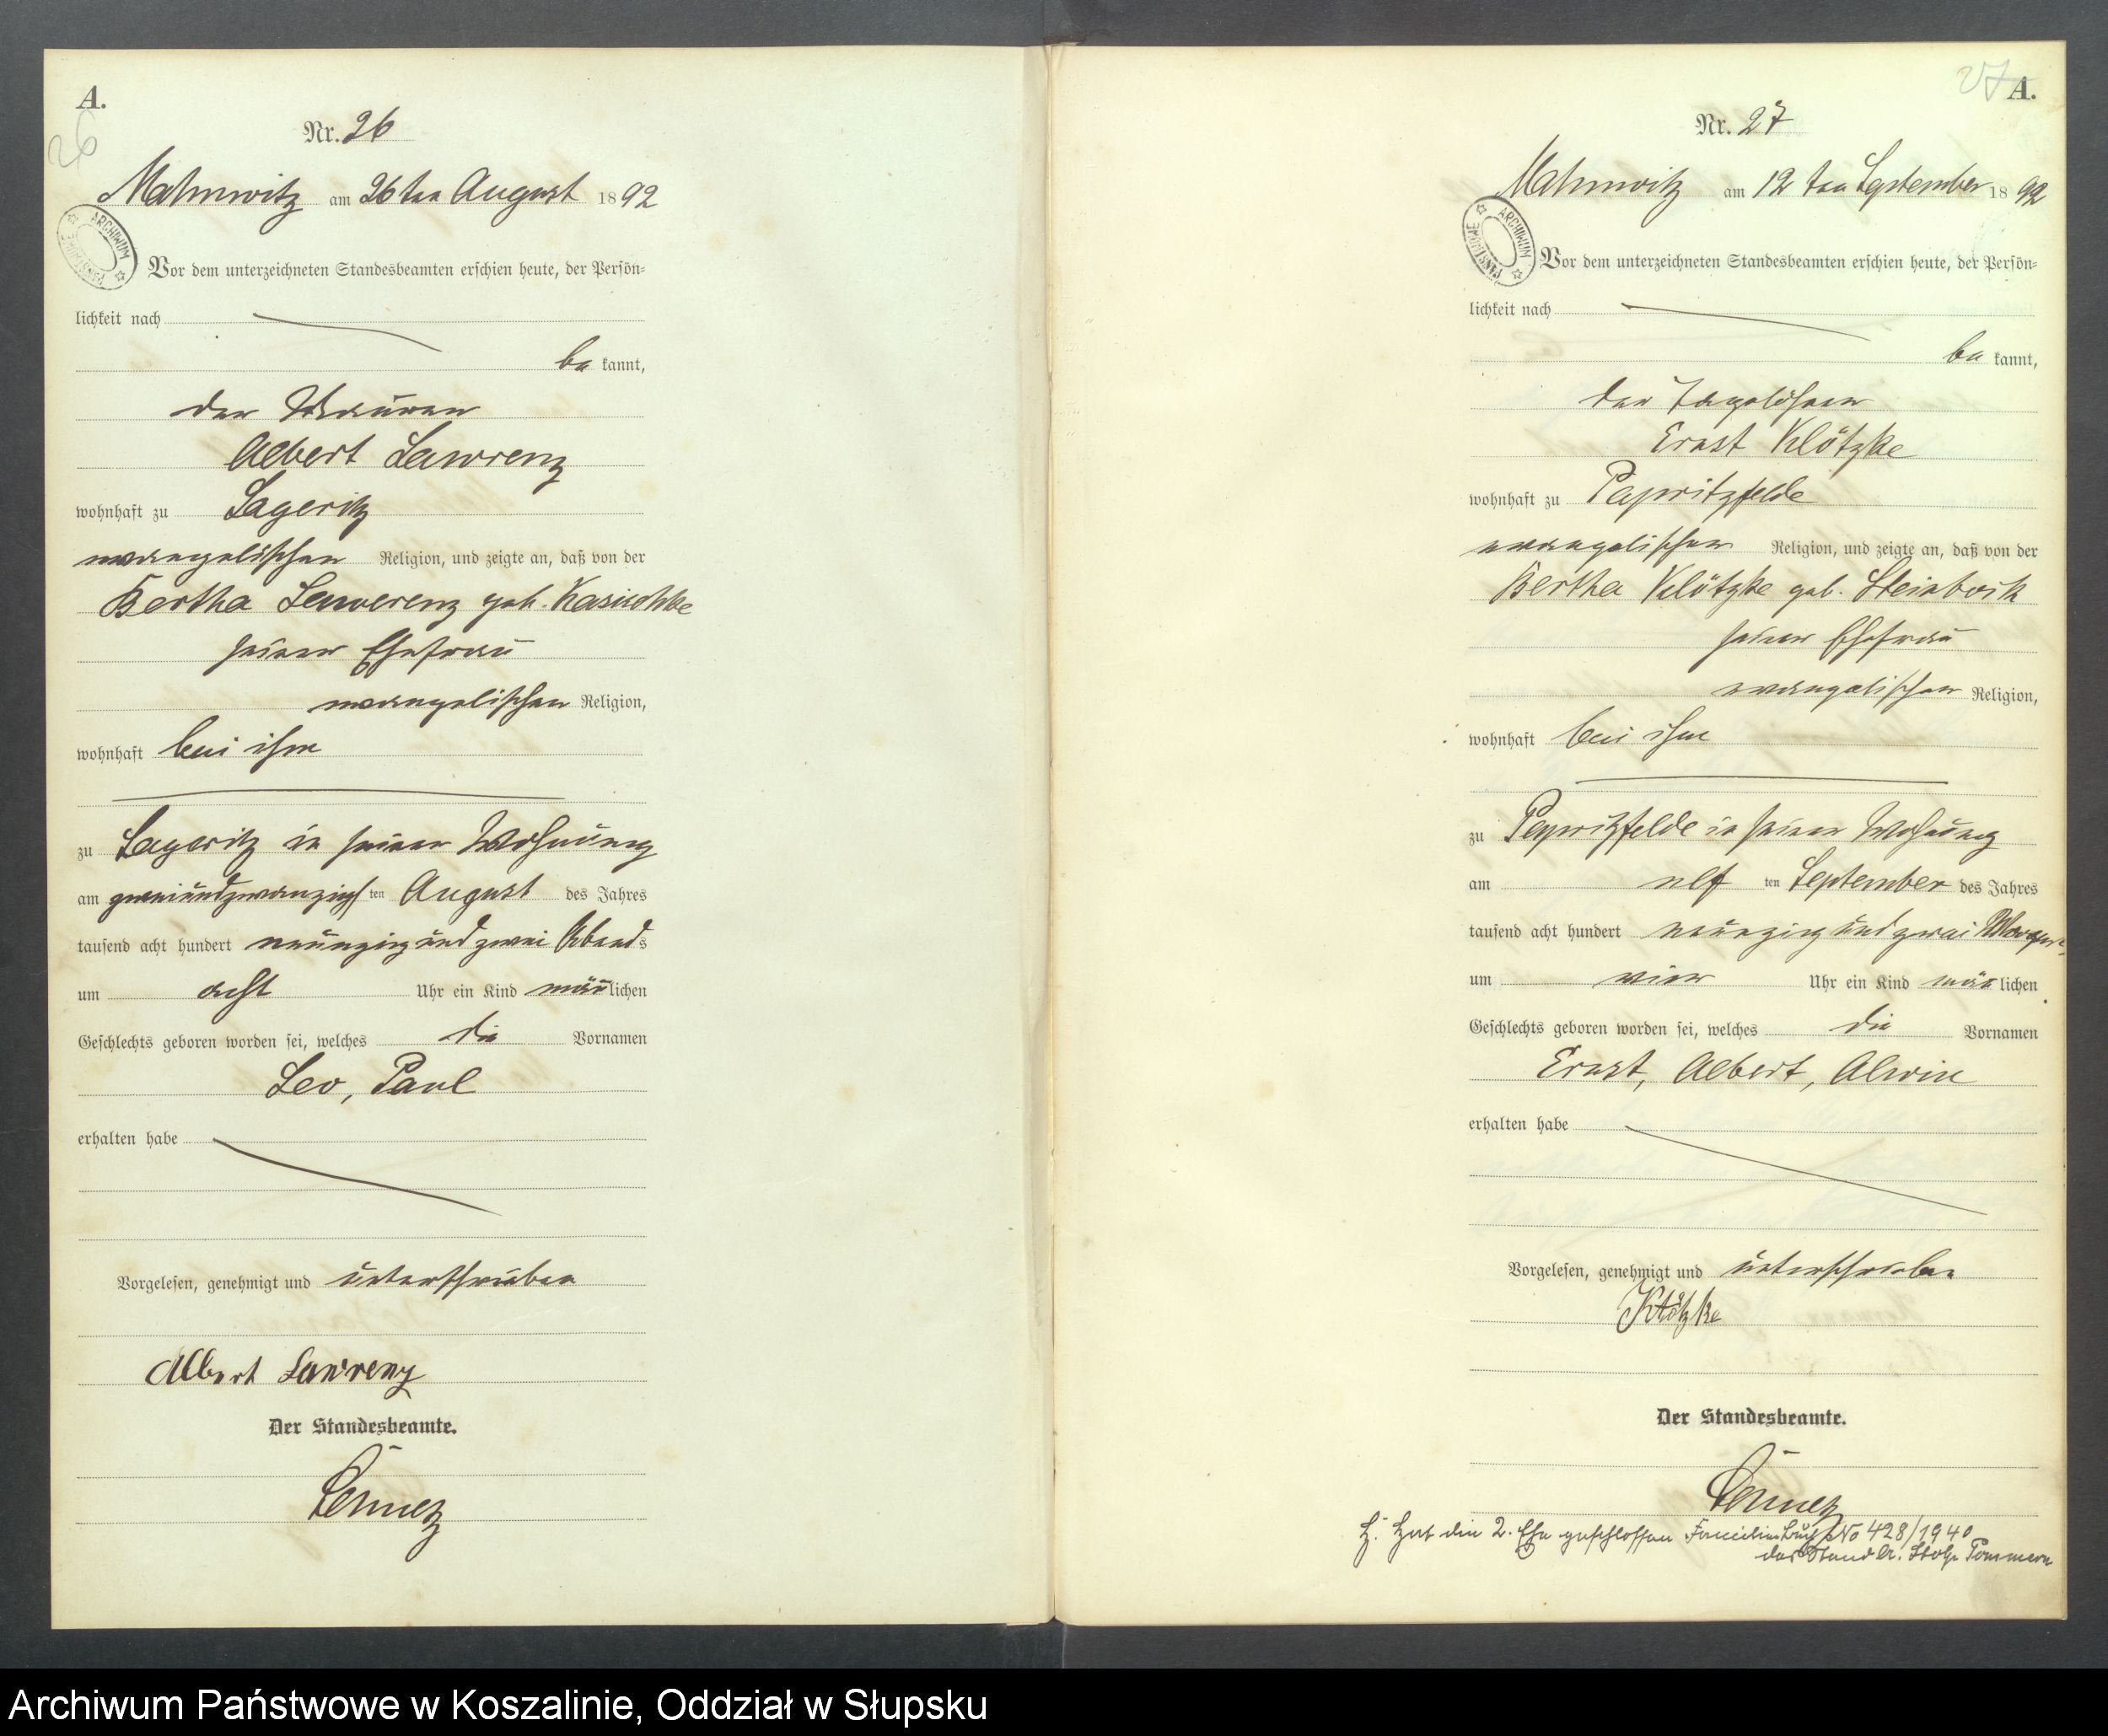 A.
26
Nr. 26
Mahnwitz am 26ten August 1892
ARCHIWUM PAŃSTWOWE
Vor dem unterzeichneten Standesbeamten erschien heute, der Persön-
lichkeit nach
be kannt,
der Maurer
Albert Lawrenz
wohnhaft zu Lageritz
evangelischer Religion, und zeigte an, daß von der
Bertha Lawerenz geb. Kasischke
seiner Ehefrau
evangelischer Religion,
wohnhaft bei ihm
zu Lageritz in seiner Wohnung
am zweiundzwanzigsten August des Jahres
tausend acht hundert neunzig und zwei Abends
um acht Uhr ein Kind männlichen
Geschlechts geboren worden sei, welches die Vornamen
Leo, Paul
erhalten habe
Vorgelesen, genehmigt und unterschrieben
Albert Lawrenz
Der Standesbeamte.
27
A.
Nr. 27
Mahnwitz am 12ten September 1892
ARCHIWUM PAŃSTWOWE
Vor dem unterzeichneten Standesbeamten erschien heute, der Persön-
lichkeit nach
be kannt,
der Tagelöhner
Ernst Klötzke
wohnhaft zu Papritzfelde
evangelischer Religion, und zeigte an, daß von der
Bertha Klötzke geb. Steinbock
seiner Ehefrau
evangelischer Religion,
wohnhaft bei ihm
zu Papritzfelde in seiner Wohnung
am elf ten September des Jahres
tausend acht hundert neunzig und zwei Morgens
um vier Uhr ein Kind männlichen
Geschlechts geboren worden sei, welches die Vornamen
Ernst, Albert, Alwin
erhalten habe
Vorgelesen, genehmigt und unterschrieben
Klötzke
Der Standesbeamte.
hat die 2. Ehe geschlossen Familienbuch No 428/1940
das Stand A. Stolp Pommern
Archiwum Państwowe w Koszalinie, Oddział w Słupsku